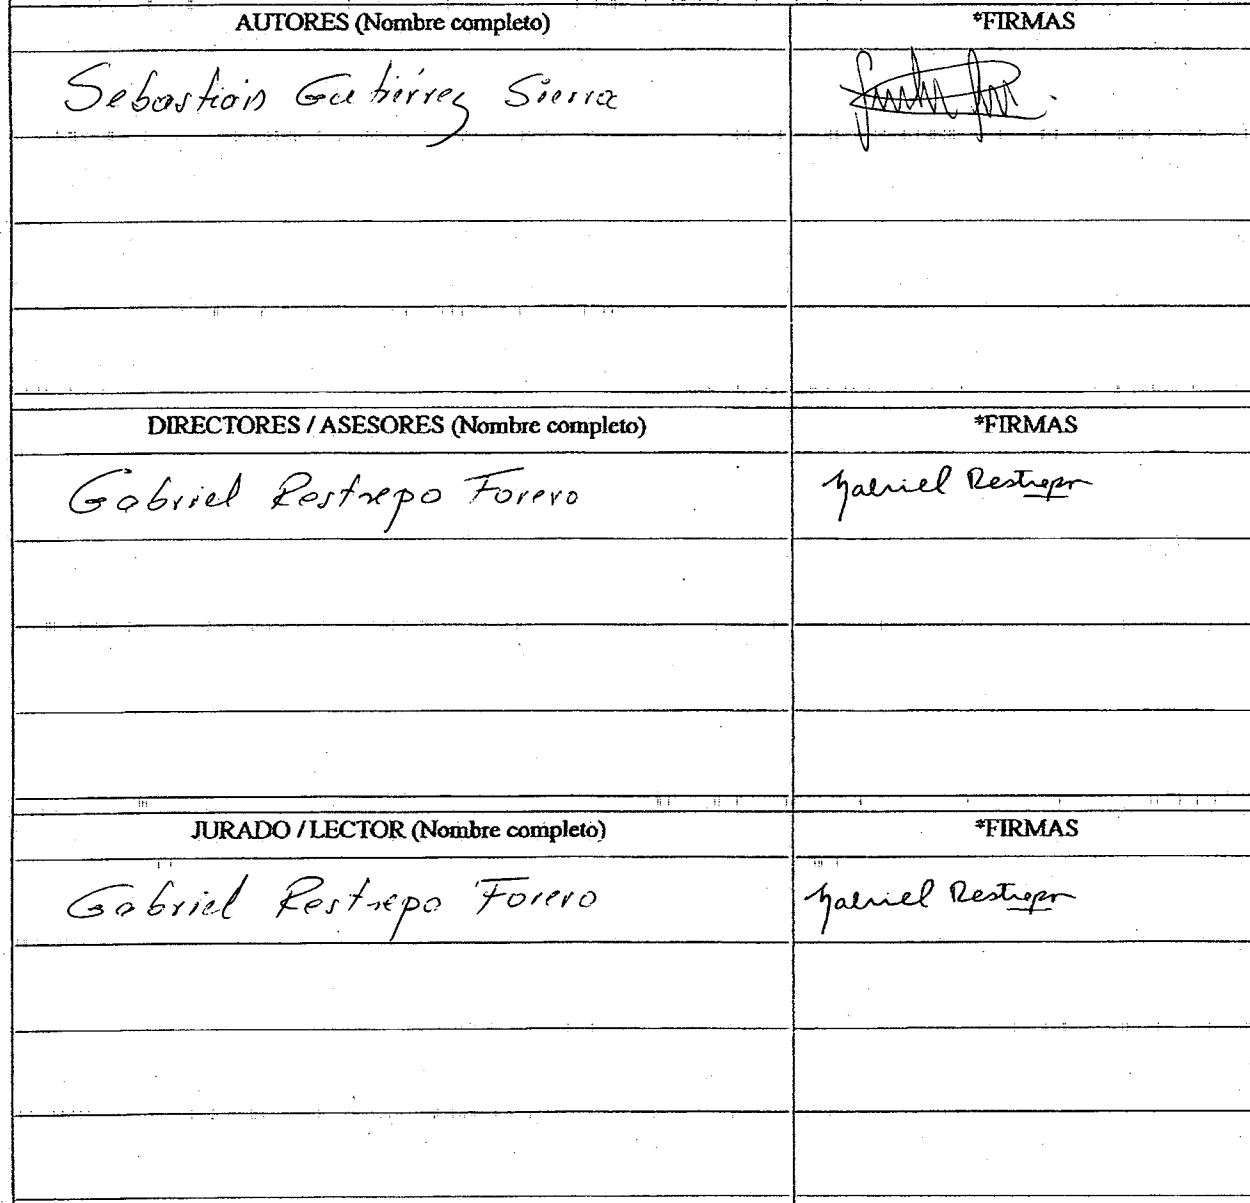 AUTORES (Nombre completo) *FIRMAS
Sebastián Gutiérrez Sierra
DIRECTORES / ASESORES (Nombre completo) *FIRMAS
Gabriel Restrepo Forero Gabriel Restrepo
JURADO / LECTOR (Nombre completo) *FIRMAS
Gabriel Restrepo Forero Gabriel Restrepo